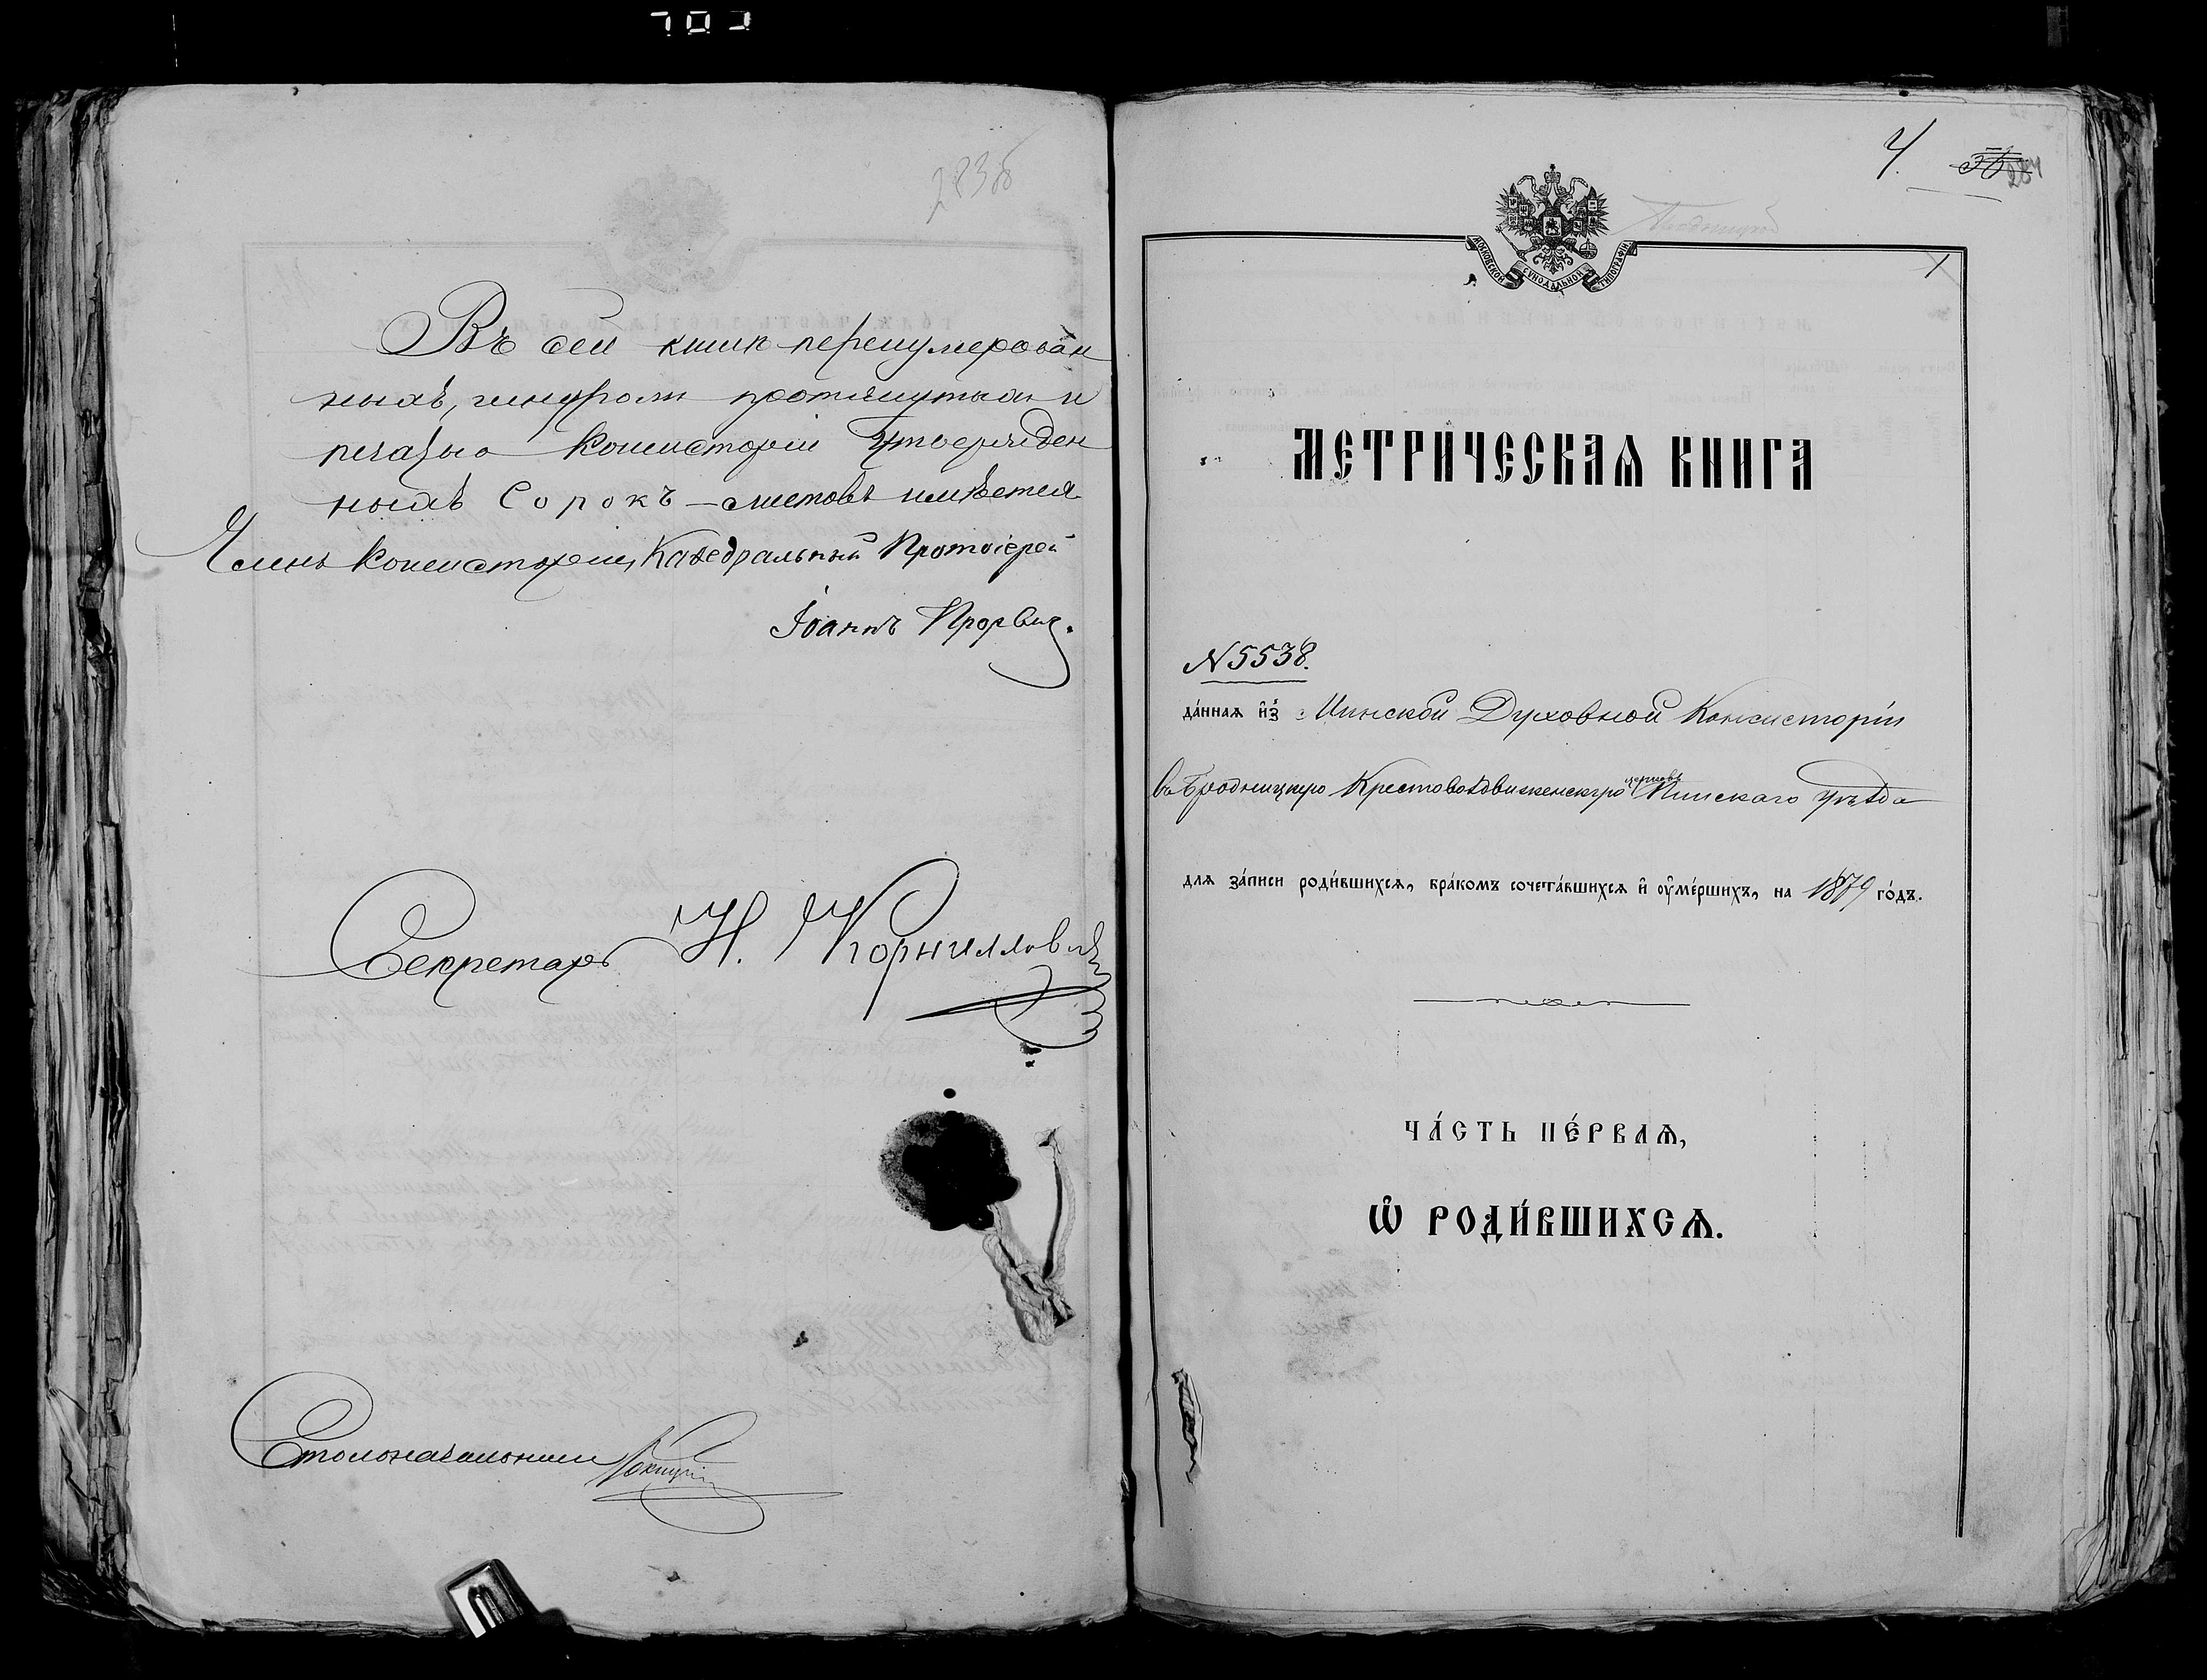 283об
Въ сей книгѣ перенумерован
ныхъ, шнуромъ протянутыхъ и
печатью Консисторіи утвержден
ныхъ Сорокъ — листовъ имѣется.
Членъ Консисторіи, Каѳедральный Протоіерей
Іоаннъ Прорвич.
Секретарь Н. Корниллович
Столоначальникъ
4.
284
1
МОСКОВСКОЙ СУНОДАЛЬНОЙ ТИПОГРАФІИ
МЕТРИ́ЧЕСКАѦ КНИГА
N 5538.
да́ннаѧ и҆з̾ Минской Духовной Консисторіи
въ Бродницкую Крестовоздвиженскую церковь Пинскаго уѣзда
длѧ за́писи роди́вшихсѧ, бра́комъ сочета́вшихсѧ и҆ ѹ҆ме́ршихъ, на 1879 го́дъ.
ЧА́СТЬ ПЕ́РВАѦ,
Ѽ РОДИ́ВШИХСѦ.